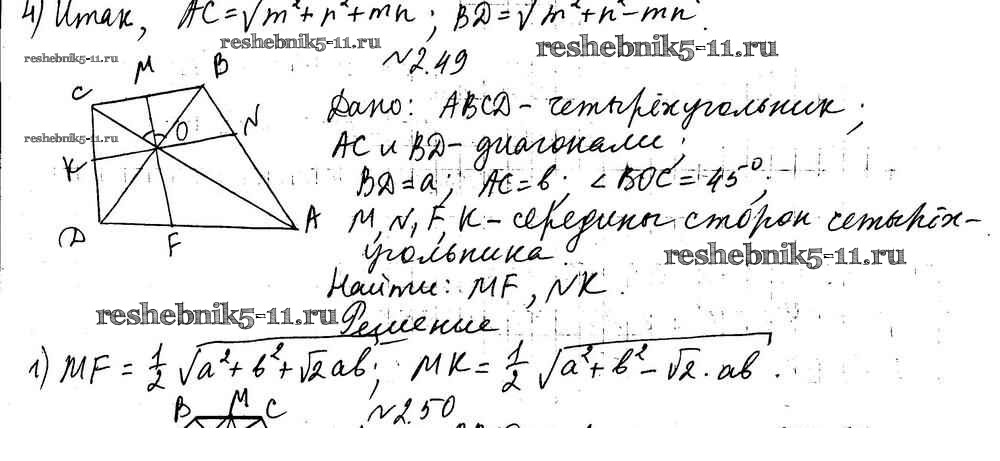 4) Итак, AC = √m²+n²+mn ; BD = √m²+n²-mn.
reshebnik5-11.ru
reshebnik5-11.ru
reshebnik5-11.ru
№2.49
C M B
Дано: ABCD - четырёхугольник;
reshebnik5-11.ru
O N
AC и BD - диагонали;
K
BD = a; AC = b; ∠BOC = 45°;
D F A
M, N, F, K - середины сторон четырёх-
угольника.
reshebnik5-11.ru
Найти: MF, NK.
reshebnik5-11.ru
Решение
1) MF = 1/2 √a²+b²+√2ab ; MK = 1/2 √a²+b²-√2·ab .
B M C
№2.50